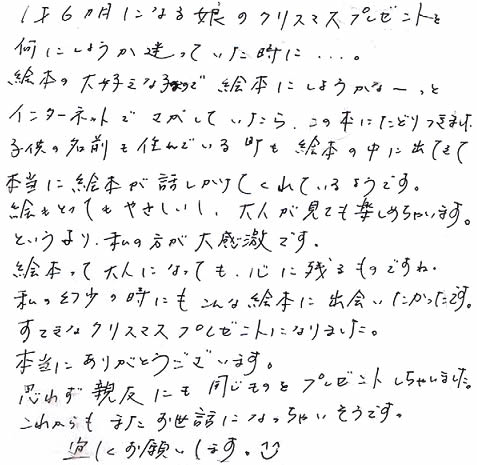 1才6カ月になる娘のクリスマスプレゼントを
何にしようか迷っていた時に・・・。
絵本の大好きな子なので絵本にしようかな〜っと
インターネットでさがしていたら、この本にたどりつきました。
子供の名前も住んでいる町も絵本の中に出てきて
本当に絵本が話しかけてくれているようです。
絵もとってもやさしいし、大人が見ても楽しめちゃいます。
というより、私の方が大感激です。
絵本って大人になっても、心に残るものですね。
私の幼少の時にもこんな絵本に出会いたかったです。
すてきなクリスマスプレゼントになりました。
本当にありがとうございます。
思わず親友にも同じものをプレゼントしちゃいました。
これからもまたお世話になっちゃいそうです。
宜しくお願いします。